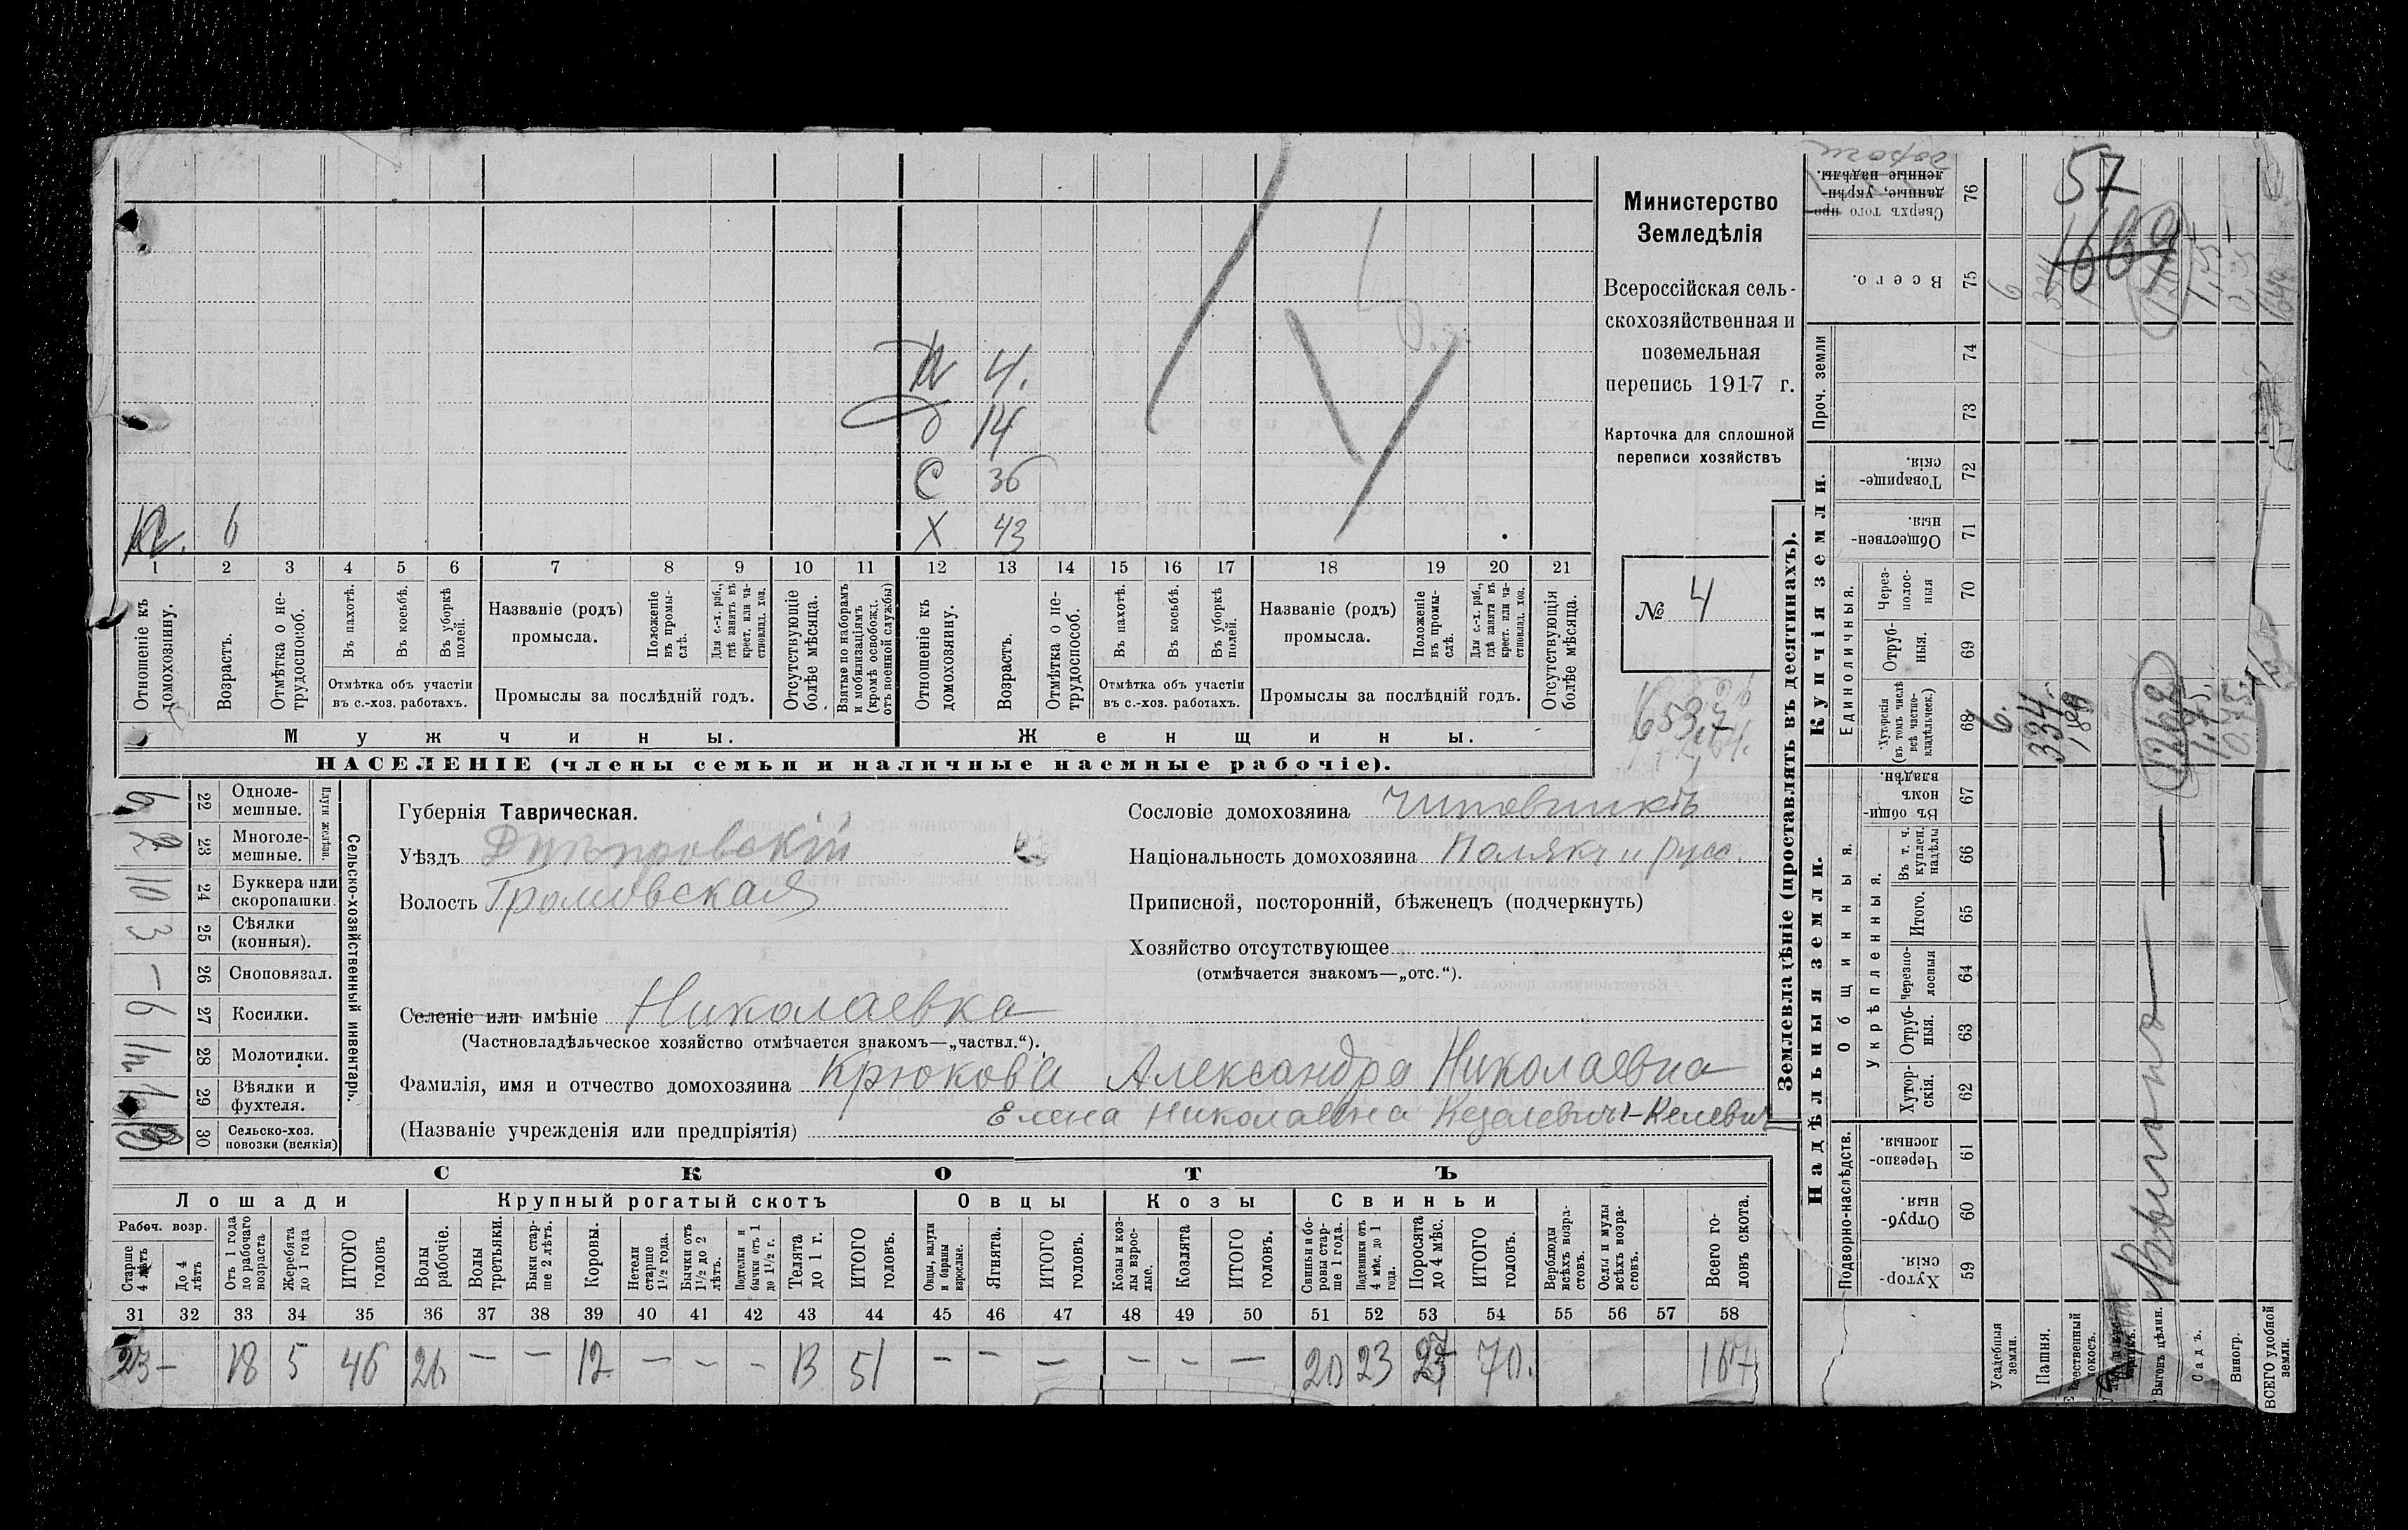 Министерство
Земледѣлія
Всероссійская сель-
скохозяйственная и
поземельная
перепись 1917 г.
Карточка для сплошной
переписи хозяйствъ
№ 4
N 4.
д 14
С 36
N. 6
Х 43
1 2 3 4 5 6 7 8 9 10 11 12 13 14 15 16 17 18 19 20 21
Отношеніе къ домохозяину.
Возрастъ.
Отмѣтка о не-трудоспособ.
Въ пахотѣ.
Въ косьбѣ.
Въ уборкѣ полей.
Отмѣтка объ участіи
въ с.-хоз. работахъ.
Названіе (родъ)
промысла.
Положеніе въ промы-слѣ.
Для с.-х. раб., гдѣ занятъ въ крест. или ча-стновлад. хоз.
Промыслы за послѣдній годъ.
Отсутствующіе болѣе мѣсяца.
Взятые по наборамъ и мобилизаціямъ (кромѣ освобожд. отъ военной службы)
Отношеніе къ домохозяину.
Возрастъ.
Отмѣтка о не-трудоспособ.
Въ пахотѣ.
Въ косьбѣ.
Въ уборкѣ полей.
Отмѣтка объ участіи
въ с.-хоз. работахъ.
Названіе (родъ)
промысла.
Положеніе въ промы-слѣ.
Для с.-х. раб., гдѣ занята въ крест. или ча-стновлад. хоз.
Промыслы за послѣдній годъ.
Отсутствующія болѣе мѣсяца.
Мужчины.
Женщины.
НАСЕЛЕНІЕ (члены семьи и наличные наемные рабочіе).
Сельско-хозяйственный инвентарь.
Плуги желѣзн.
22 Одноле-мешные. 6
23 Многоле-мешные. 2
24 Буккера или скоропашки. 10
25 Сѣялки (конныя). 3
26 Сноповязал. –
27 Косилки. 6
28 Молотилки.
29 Вѣялки и фухтеля.
30 Сельско-хоз. повозки (всякія)
Губернія Таврическая.
Уѣздъ Днѣпровскій
Волость Громовская
Сословіе домохозяина чиновникъ
Національность домохозяина Полякъ и русс.
Приписной, посторонній, бѣженецъ (подчеркнуть)
Хозяйство отсутствующее
(отмѣчается знакомъ—„отс.“).
Селеніе или имѣніе Николаевка
(Частновладѣльческое хозяйство отмѣчается знакомъ—„частвл.“).
Фамилія, имя и отчество домохозяина Крюкова Александра Николаевна
Елена Николаевна
(Названіе учрежденія или предпріятія)
СКОТЪ
Лошади
Крупный рогатый скотъ
Овцы
Козы
Свиньи
Рабоч. возр.
Старше 4 лѣтъ
До 4 лѣтъ
Отъ 1 года до рабочаго возраста
Жеребята до 1 года
ИТОГО головъ
Волы рабочіе.
Волы третьяки.
Быки стар-ше 2 лѣтъ.
Коровы.
Нетели старше 1½ года.
Бычки отъ 1½ до 2 лѣтъ.
Подтелки и бычки отъ 1 до 1½ г.
Телята до 1 г.
ИТОГО головъ.
Овцы, валухи и бараны взрослые.
Ягнята.
ИТОГО головъ.
Козы и коз-лы взрос-лые.
Козлята
ИТОГО головъ.
Свиньи и бо-ровы стар-ше 1 года.
Подсвинки отъ 4 мѣс. до 1 года.
Поросята до 4 мѣс.
ИТОГО головъ.
Верблюды всѣхъ возра-стовъ.
Ослы и мулы всѣхъ возра-стовъ.
Всего го-ловъ скота.
31 32 33 34 35 36 37 38 39 40 41 42 43 44 45 46 47 48 49 50 51 52 53 54 55 56 57 58
23 – 18 5 46 26 – – 12 – – – 13 51 – – – – – – 20 23 27 70. 167
Землевладѣніе (проставлять въ десятинахъ).
Надѣльныя земли.
Купчія земли.
Проч. земли
Подворно-наслѣдств.
Общинныя.
Укрѣпленныя.
Единоличныя.
Хутор-скія. 59
Отруб-ныя. 60
Черезпо-лосныя. 61
Хутор-скія. 62
Отруб-ныя. 63
Черезпо-лосныя 64
Итого. 65
Въ т. ч. куплен. надѣлы 66
Въ общин-номъ владѣн. 67
Хуторскія (въ томъ числѣ всѣ частно-владѣльческ.) 68
Отруб-ныя. 69
Через-полос-ныя 70
Обществен-ныя. 71
Товарище-скія. 72
73
74
Всего. 75
Сверхъ того про-данные, укрѣп-ленные надѣлы. 76
дороги
57
1669
Усадебныя земли. 6. 6
Пашня. 334. 334
Естественный покосъ. 180
Выгонъ цѣлин. Выгонъ 1262
Садъ. 1,75. 1,75
Виногр. 0.75. 0,75
ВСЕГО удобной земли.